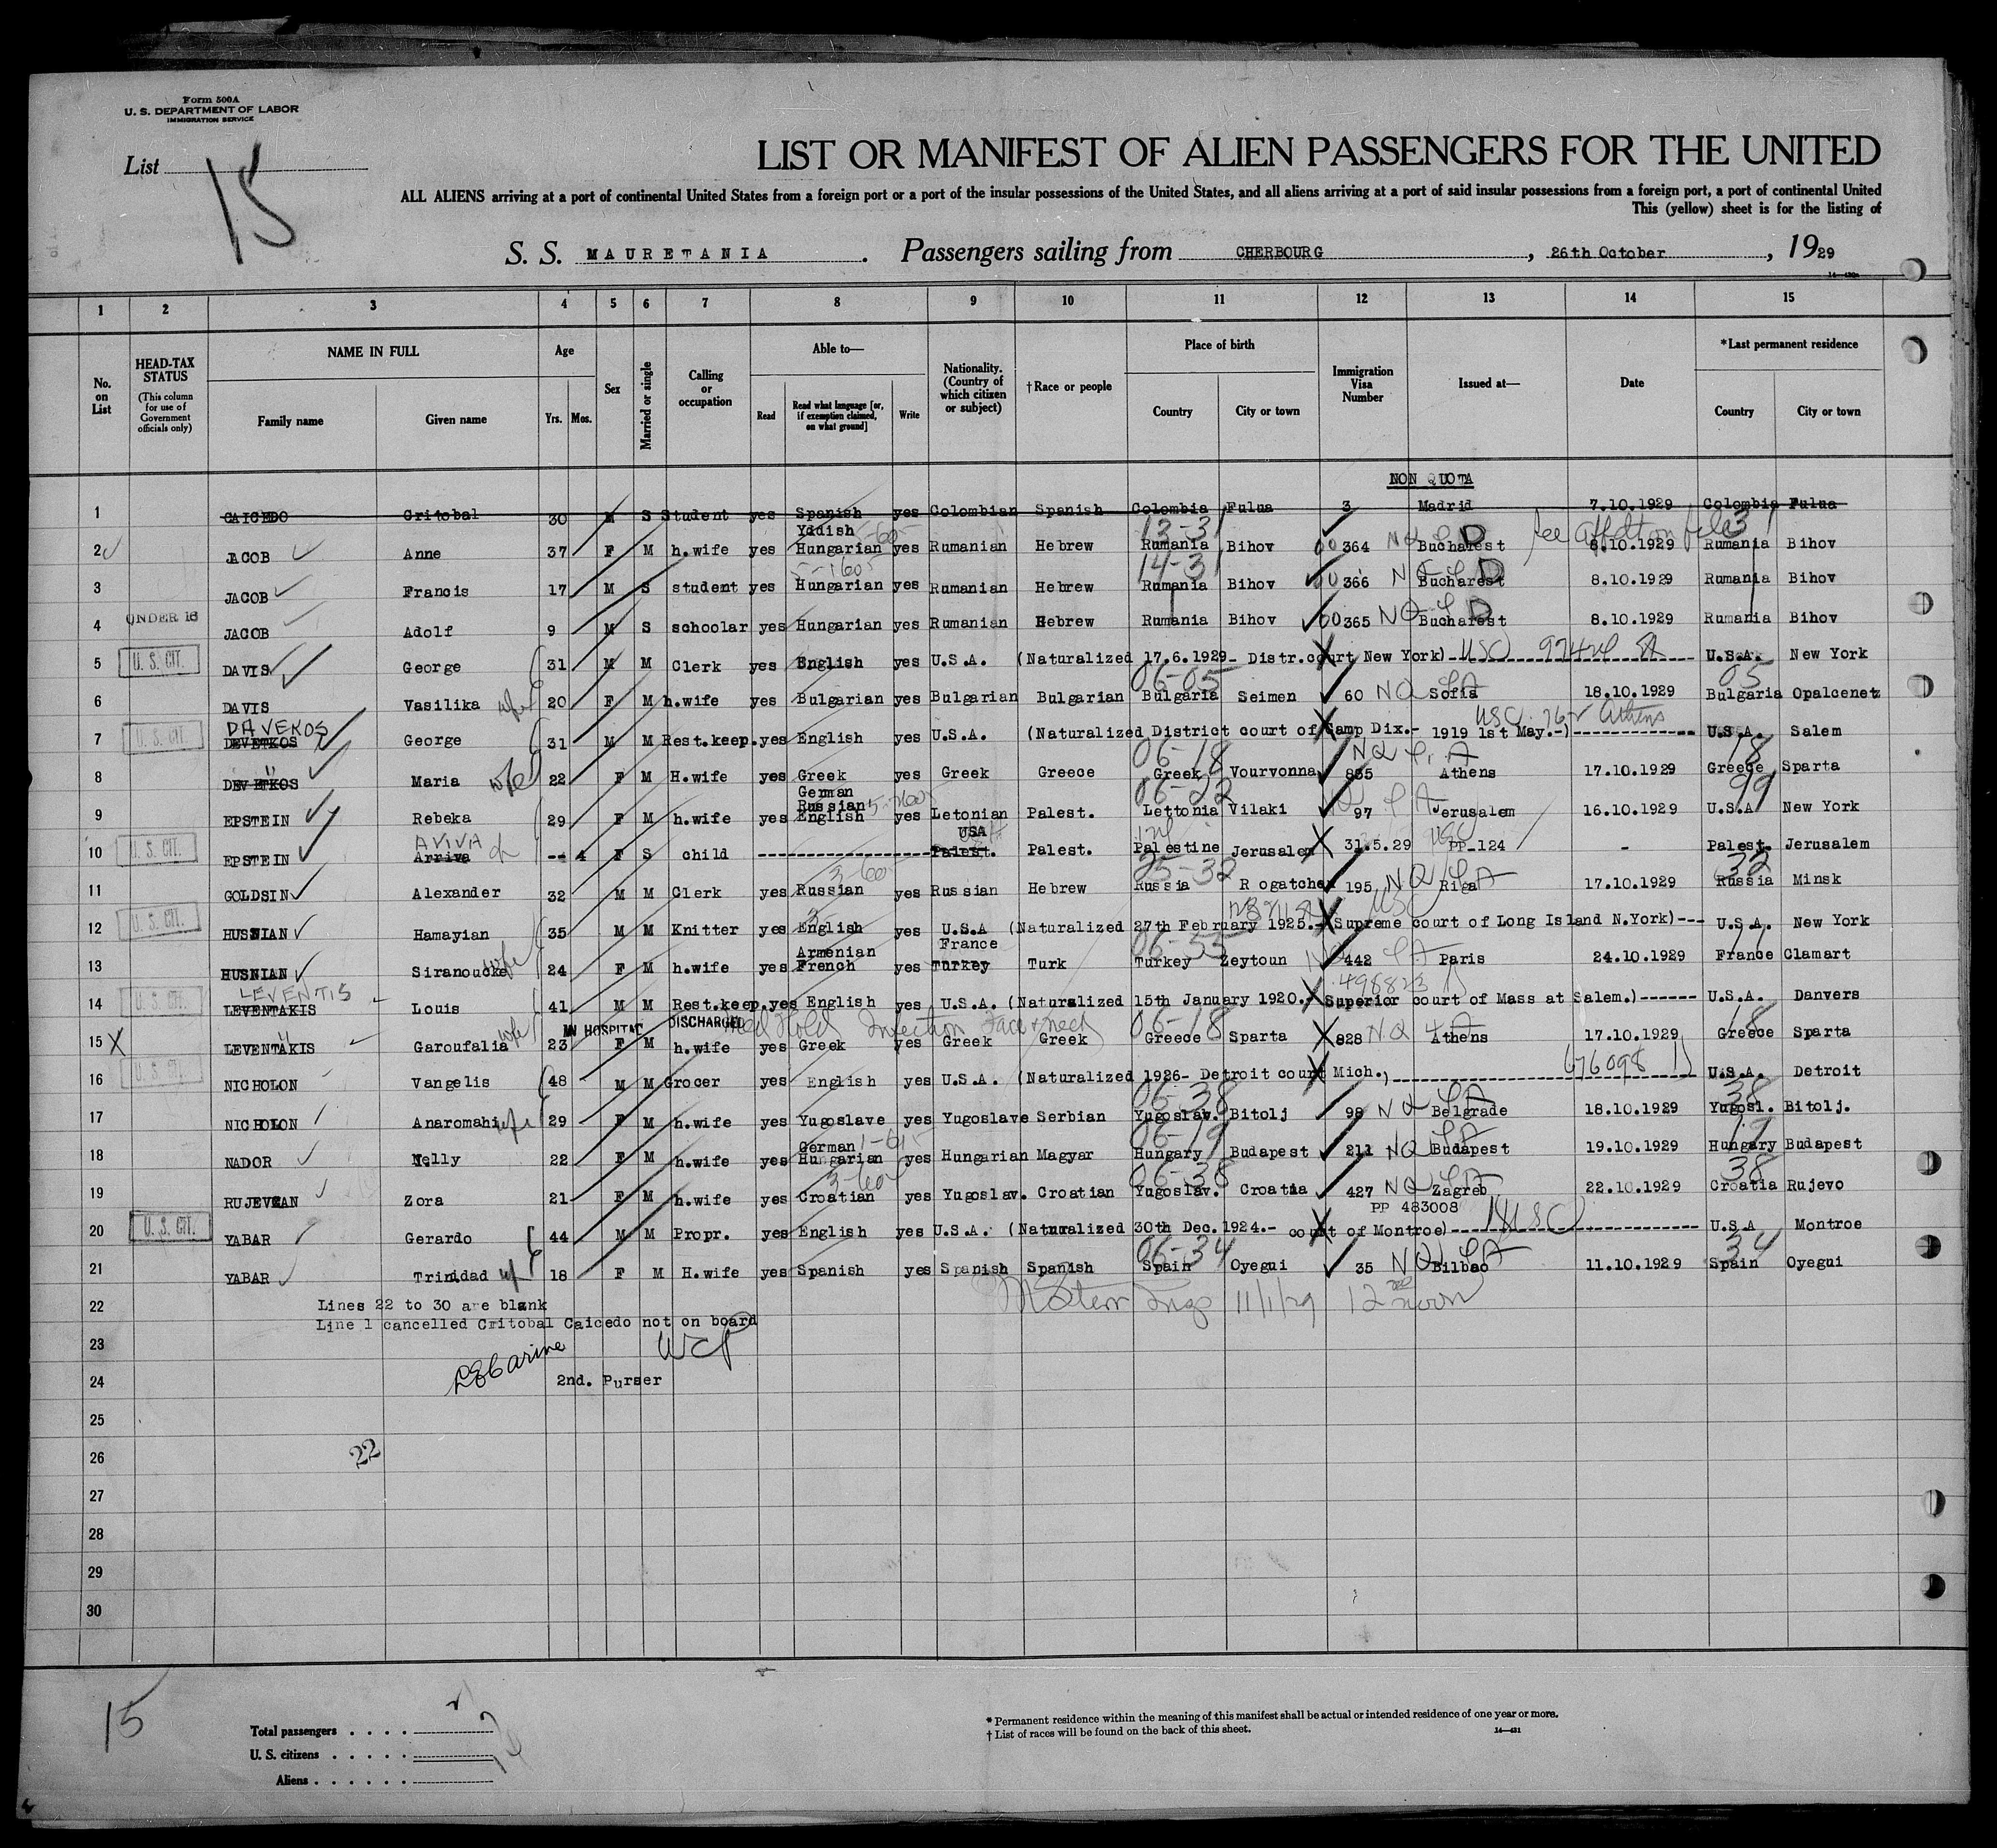 Form 500A
U. S. DEPARTMENT OF LABOR
IMMIGRATION SERVICE
List 15
LIST OR MANIFEST OF ALIEN PASSENGERS FOR THE UNITED
ALL ALIENS arriving at a port of continental United States from a foreign port or a port of the insular possessions of the United States, and all aliens arriving at a port of said insular possessions from a foreign port, a port of continental United
This (yellow) sheet is for the listing of
S. S. MAURETANIA. Passengers sailing from CHERBOURG, 26th October, 1929
1 2 3 4 5 6 7 8 9 10 11 12 13 14 15
No. on List
HEAD-TAX STATUS (This column for use of Government officials only)
NAME IN FULL
Family name Given name
Age Yrs. Mos.
Sex
Married or single
Calling or occupation
Able to—
Read Read what language [or, if exemption claimed, on what ground] Write
Nationality. (Country of which citizen or subject)
†Race or people
Place of birth
Country City or town
Immigration Visa Number
Issued at—
Date
*Last permanent residence
Country City or town
NON QUOTA
1 CAICEDO Critobal 30 M S Student yes Spanish yes Colombian Spanish Colombia Fulua 3 Madrid 7.10.1929 Colombia Fulua
2 JACOB Anne 37 F M h.wife yes Yddish Hungarian yes Rumanian Hebrew 13-31 Rumania Bihov 364 NQ Bucharest 8.10.1929 Rumania Bihov
3 JACOB Francis 17 M S student yes Hungarian yes Rumanian Hebrew 14-31 Rumania Bihov 366 NQ Bucharest 8.10.1929 Rumania Bihov
4 UNDER 16 JACOB Adolf 9 M S schoolar yes Hungarian yes Rumanian Hebrew Rumania Bihov 365 NQ Bucharest 8.10.1929 Rumania Bihov
5 U. S. CIT. DAVIS George 31 M M Clerk yes English yes U.S.A. (Naturalized 17.6.1929- Distr.court New York) USC U.S.A. New York
6 DAVIS Vasilika wife 20 F M h.wife yes Bulgarian yes Bulgarian Bulgarian 06-05 Bulgaria Seimen 60 NQ Sofia 18.10.1929 05 Bulgaria Opalcenetz
7 U. S. CIT. DAVEKOS DEVETKOS George 31 M M Rest.keep. yes English yes U.S.A. (Naturalized District court of Camp Dix.- 1919 1st May.-) USC Athens U.S.A. Salem
8 DEVETKOS " Maria wife 22 F M H.wife yes Greek yes Greek Greece 06-18 Greek Vourvonna 835 NQ Athens 17.10.1929 18 Greece Sparta
9 EPSTEIN Rebeka 29 F M h.wife yes German Russian English yes Letonian Palest. 06-22 Lettonia Vilaki 97 Jerusalem 16.10.1929 99 U.S.A New York
10 U. S. CIT. EPSTEIN AVIVA Arriva -- 4 F S child USA Palest. Palest. Palestine Jerusalem 31.5.29 USC PP-124 - Palest. Jerusalem
11 GOLDSIN Alexander 32 M M Clerk yes Russian yes Russian Hebrew 25-32 Russia Rogatchev 195 NQ Riga 17.10.1929 32 Russia Minsk
12 U. S. CIT. HUSNIAN Hamayian 35 M M Knitter yes English yes U.S.A (Naturalized 27th February 1925.- Supreme court of Long Island N.York)--- USC U.S.A. New York
13 HUSNIAN Siranoucke wife 24 F M h.wife yes Armenian French yes France Turkey Turk Turkey Zeytoun 442 Paris 24.10.1929 France Clamart
14 U. S. CIT. LEVENTIS LEVENTAKIS Louis 41 M M Rest.keep. yes English yes U.S.A. (Naturalized 15th January 1920. Superior court of Mass at Salem.)------ 498823 U.S.A. Danvers
IN HOSPITAL DISCHARGED Med Hold Infection Face & neck
15 X LEVENTAKIS " Garoufalia wife 23 F M h.wife yes Greek yes Greek Greek 06-18 Greece Sparta 828 NQ Athens 17.10.1929 18 Greece Sparta
16 U. S. Cit. NICHOLON Vangelis 48 M M Grocer yes English yes U.S.A. (Naturalized 1926- Detroit court Mich.) 676098 U.S.A. Detroit
17 NICHOLON Anaromahi wife 29 F M h.wife yes Yugoslave yes Yugoslave Serbian 06-38 Yugoslav. Bitolj 98 NQ Belgrade 18.10.1929 38 Yugosl. Bitolj.
18 NADOR Nelly 22 F M h.wife yes German Hungarian yes Hungarian Magyar 06-19 Hungary Budapest 211 NQ Budapest 19.10.1929 19 Hungary Budapest
19 RUJEVCAN Zora 21 F M h.wife yes Croatian yes Yugoslav. Croatian 06-38 Yugoslav. Croatia 427 NQ Zagreb 22.10.1929 38 Croatia Rujevo
PP 483008
20 U. S. CIT. YABAR Gerardo 44 M M Propr. yes English yes U.S.A. (Naturalized 30th Dec.1924.- court of Montroe) USC U.S.A Montroe
21 YABAR Trinidad wf 18 F M H.wife yes Spanish yes Spanish Spanish 06-34 Spain Oyegui 35 NQ Bilbao 11.10.1929 34 Spain Oyegui
22 Lines 22 to 30 are blank 11/1/29 12 noon
Line 1 cancelled Critobal Caicedo not on board
23
24 2nd. Purser
25
26 22
27
28
29
30
15
Total passengers
U. S. citizens
Aliens
* Permanent residence within the meaning of this manifest shall be actual or intended residence of one year or more.
† List of races will be found on the back of this sheet.
14—431